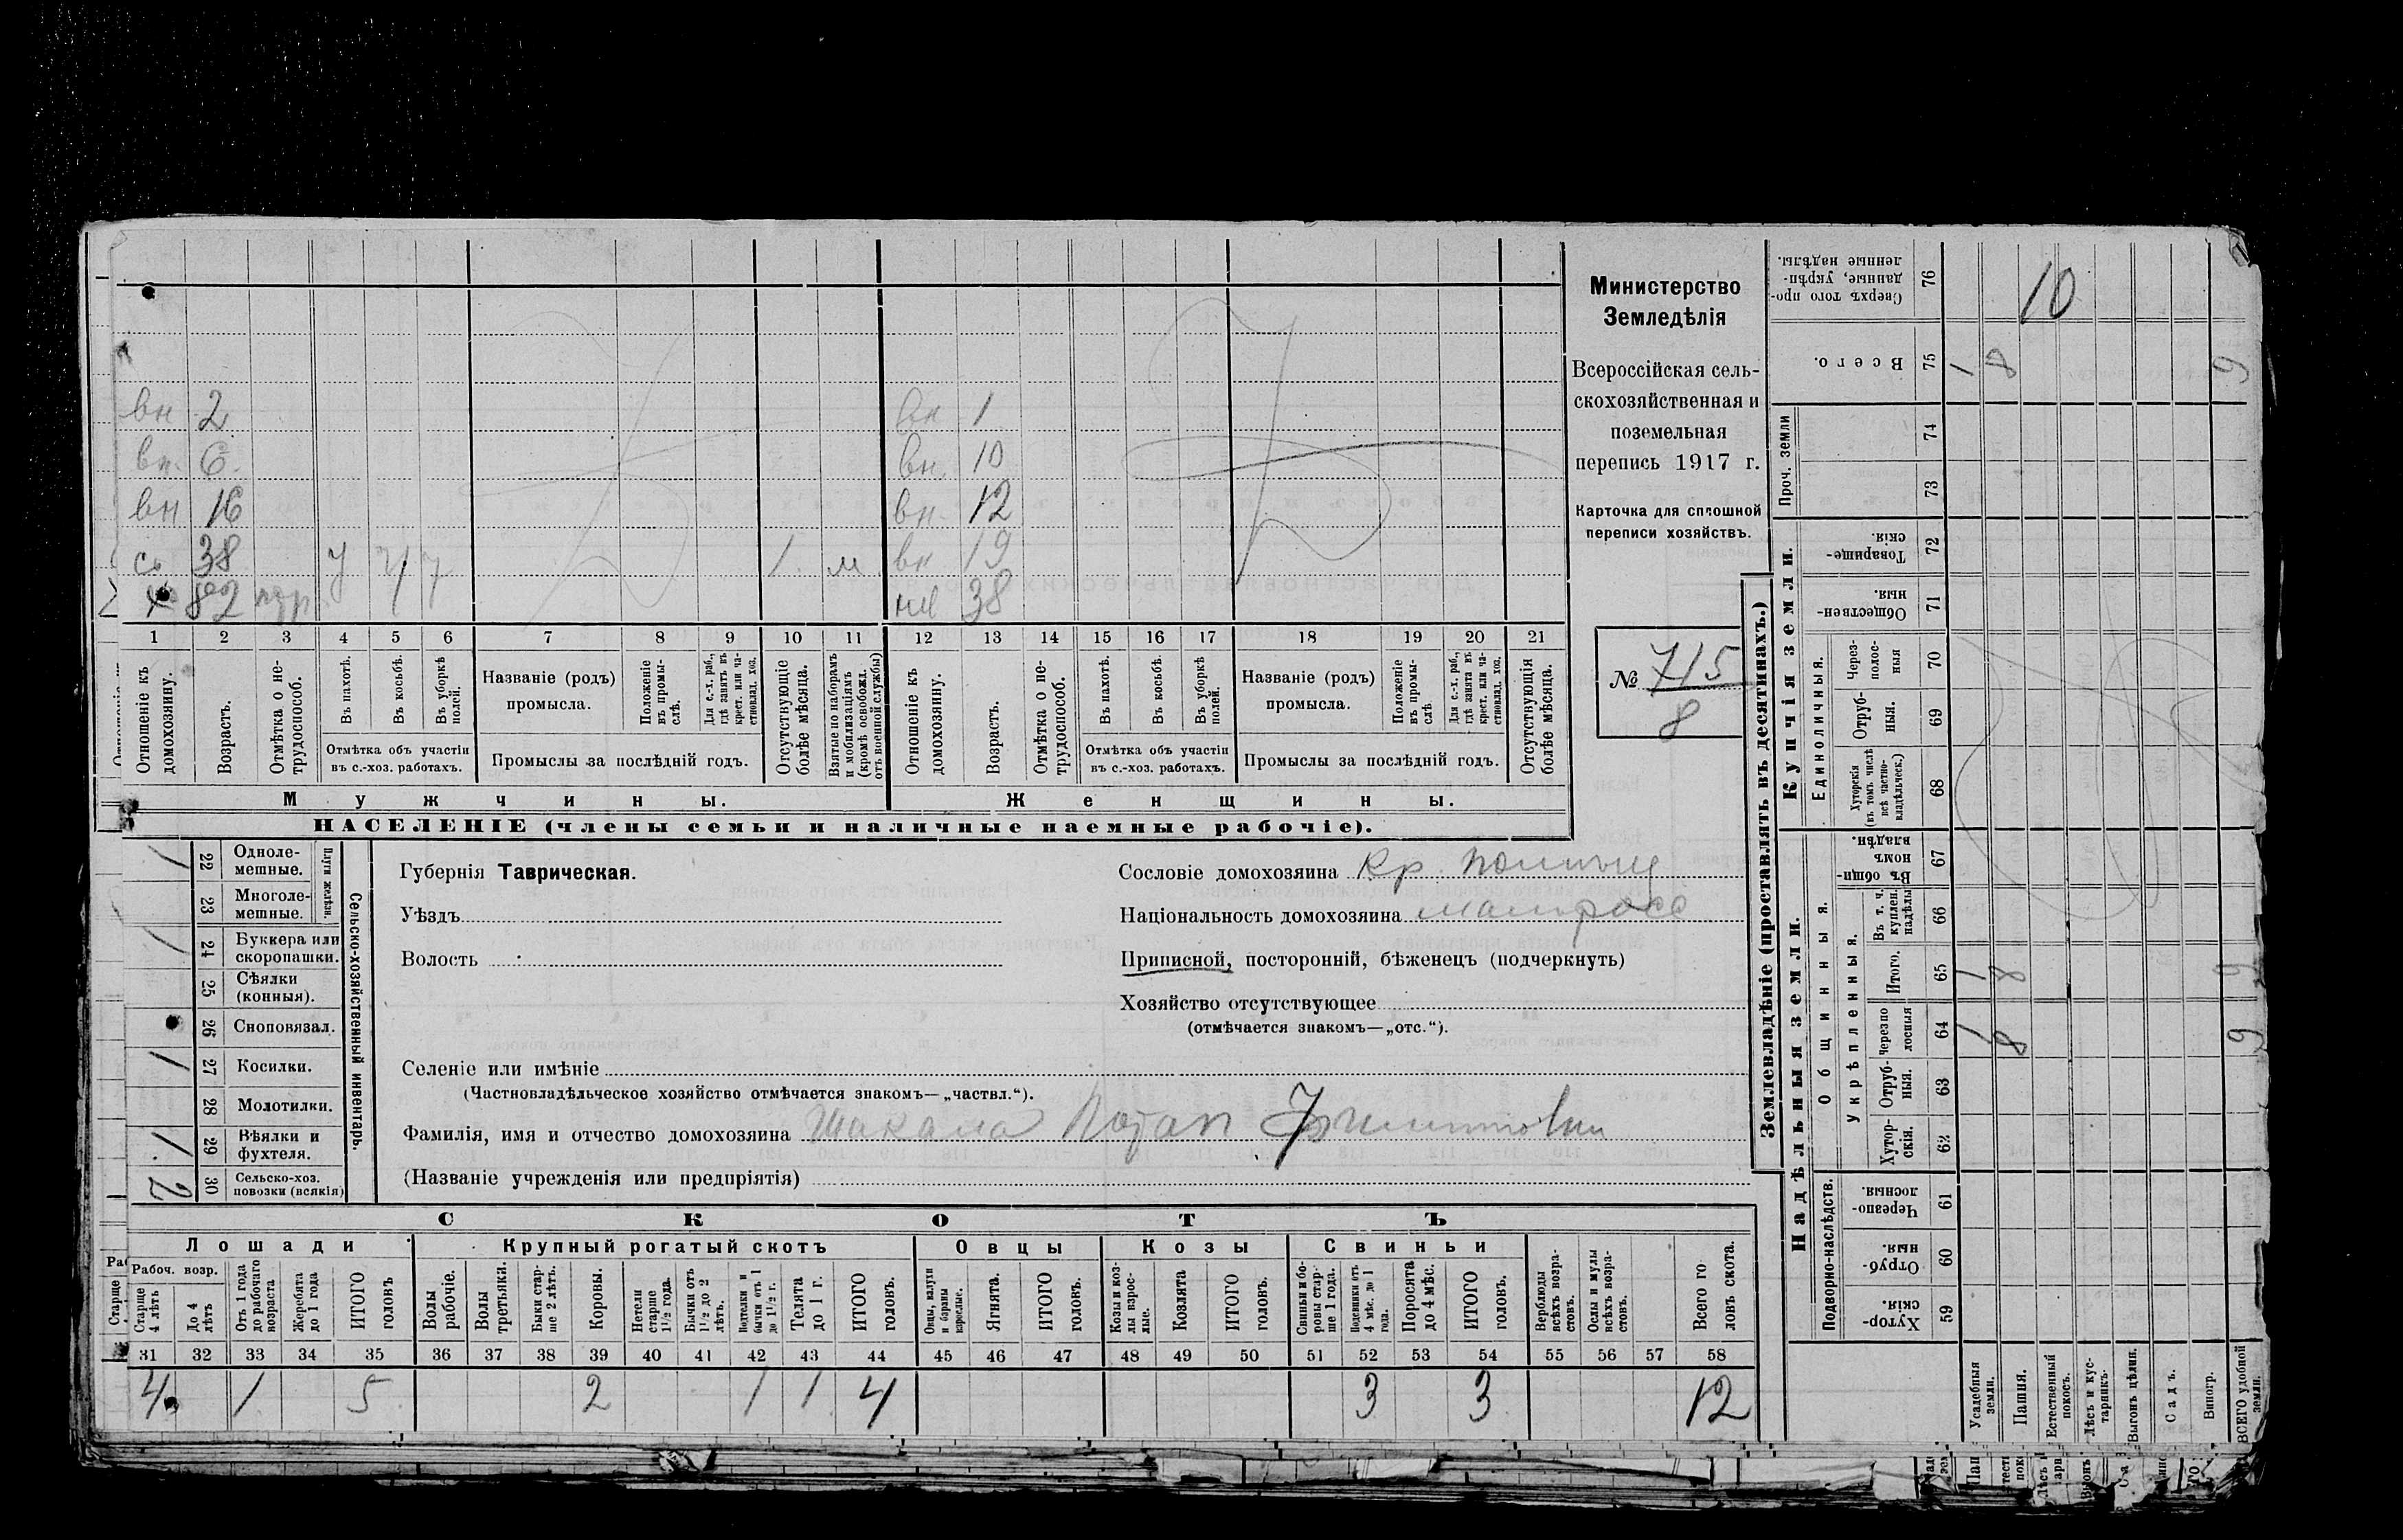 вн 2 вн 1
вн. 6. вн. 10
вн 16 вн. 12
с. 38 у у у 1. м вн 19
х 82 нтр. нм 38
1 2 3 4 5 6 7 8 9 10 11 12 13 14 15 16 17 18 19 20 21
Отношеніе къ домохозяину.
Возрастъ.
Отмѣтка о не-трудоспособ.
Въ пахотѣ.
Въ косьбѣ.
Въ уборкѣ полей.
Отмѣтка объ участіи
въ с.-хоз. работахъ.
Названіе (родъ)
промысла.
Положеніе въ промы-слѣ.
Для с.-х. раб., гдѣ занятъ въ крест. или ча-стновлад. хоз.
Промыслы за послѣдній годъ.
Отсутствующіе болѣе мѣсяца.
Взятые по наборамъ и мобилизаціямъ (кромѣ освобожд. отъ военной службы)
Отношеніе къ домохозяину.
Возрастъ.
Отмѣтка о не-трудоспособ.
Въ пахотѣ.
Въ косьбѣ.
Въ уборкѣ полей.
Отмѣтка объ участіи
въ с.-хоз. работахъ.
Названіе (родъ)
промысла.
Положеніе въ промы-слѣ
Для с.-х. раб., гдѣ занята въ крест. или ча-стновлад. хоз.
Промыслы за послѣдній годъ.
Отсутствующія болѣе мѣсяца.
Мужчины. Женщины.
НАСЕЛЕНІЕ (члены семьи и наличные наемные рабочіе).
Министерство
Земледѣлія
Всероссійская сель-
скохозяйственная и
поземельная
перепись 1917 г.
Карточка для сплошной
переписи хозяйствъ.
№ 715
8
Сельско-хозяйственный инвентарь.
Плуги желѣзн.
1 22 Одноле-мешные.
23 Многоле-мешные.
1 24 Буккера или скоропашки.
25 Сѣялки (конныя).
26 Сноповязал.
1 27 Косилки.
28 Молотилки.
1 29 Вѣялки и фухтеля.
2 30 Сельско-хоз. повозки (всякія)
Губернія Таврическая.
Уѣздъ
Волость
Селеніе или имѣніе
(Частновладѣльческое хозяйство отмѣчается знакомъ—„частвл.“).
Фамилія, имя и отчество домохозяина Шакала Потап
(Названіе учрежденія или предпріятія)
Сословіе домохозяина Кр.
Національность домохозяина малоросс
Приписной, посторонній, бѣженецъ (подчеркнуть)
Хозяйство отсутствующее
(отмѣчается знакомъ—„отс.“).
СКОТЪ
Лошади Крупный рогатый скотъ Овцы Козы Свиньи
Рабоч. возр.
Старше 4 лѣтъ
До 4 лѣтъ
Отъ 1 года до рабочаго возраста
Жеребята до 1 года
ИТОГО головъ
Волы рабочіе.
Волы третьяки.
Быки стар-ше 2 лѣтъ.
Коровы.
Нетели старше 1½ года.
Бычки отъ 1½ до 2 лѣтъ.
Подтелки и бычки отъ 1 до 1½ г.
Телята до 1 г.
ИТОГО головъ.
Овцы, валухи и бараны взрослые.
Ягнята.
ИТОГО головъ.
Козы и коз-лы взрос-лые.
Козлята
ИТОГО головъ.
Свиньи и бо-ровы стар-ше 1 года.
Подсвинки отъ 4 мѣс. до 1 года.
Поросята до 4 мѣс.
ИТОГО головъ.
Верблюды всѣхъ возра-стовъ.
Ослы и мулы всѣхъ возра-стовъ.
Всего го-ловъ скота.
31 32 33 34 35 36 37 38 39 40 41 42 43 44 45 46 47 48 49 50 51 52 53 54 55 56 57 58
4 1 5 2 1 1 4 3 3 12
Землевладѣніе (проставлять въ десятинахъ.)
Купчія земли.
Надѣльныя земли.
Сверхъ того про-данные, укрѣп-ленные надѣлы. 76 10
Всего. 75 1 8 9
Проч. земли 74
73
Товарище-скія. 72
Обществен-ныя. 71
Единоличныя.
Через-полос-ныя 70
Отруб-ныя. 69
Хуторскія (въ томъ числѣ всѣ частно-владѣльческ.) 68
Общинныя.
Въ общин-номъ владѣн. 67
Укрѣпленныя.
Въ т. ч. куплен. надѣлы 66
Итого. 65 1 8 9
Черезпо-лосныя 64 1 8 9
Отруб-ныя. 63
Хутор-скія. 62
Подворно-наслѣдств.
Черезпо-лосныя. 61
Отруб-ныя. 60
Хутор-скія. 59
Усадебныя земли.
Пашня.
Естественный покосъ.
Лѣсъ и кус-тарникъ.
Выгонъ цѣлин.
Садъ.
Виногр.
ВСЕГО удобной земли.